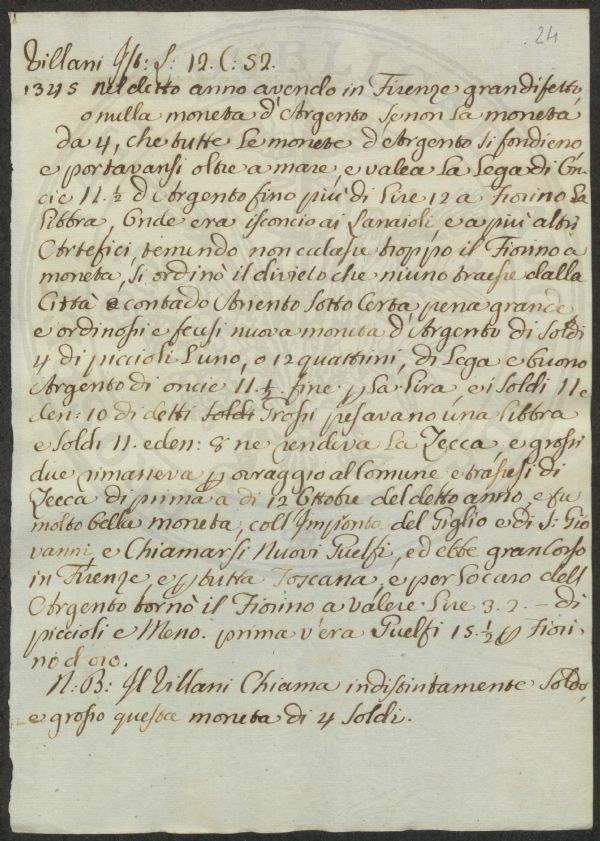 24
Villani Ist: L: 12. C: 52.
1345 nel detto anno avendo in Firenze gran difetto,
o nulla moneta d'Argento, se non la moneta
da 4, che tutte le monete d'Argento si fondieno,
e portavansi oltre a mare, e valea la lega di On-
cie 11.½ d'Argento fino più di lire 12 a Fiorino la
libbra, Onde era isconcio ai Lanaioli, e a più altri
Artefici, temendo non calasse troppo il Fiorino a
moneta, si ordinò il divieto che niuno traesse dalla
Città e contado Ariento sotto Certa pena grande
e ordinossi e fecesi nuova moneta d'Argento di Soldi
4 di piccioli l'uno, o 12 quattrini, di lega e buono
Argento di oncie 11.½ fine p la lira e i Soldi 11 e
den: 10 di detti Soldi Grossi pesavano una libbra
e Soldi 11. e den: 8 ne rendeva la Zecca, e grossi
due rimaneva p ovraggio al Comune e trassesi di
Zecca di prima a dì 12 Ottobre del detto anno, e fu
molto bella moneta, coll'Impronta del Giglio e di S: Gio
vanni, e Chiamarsi Nuovi Guelfi, ed ebbe gran Corso
in Firenze, e p tutta Toscana, e per lo caro dell'
Argento tornò il Fiorino a valere lire 3. 2. – di
piccioli e Meno. prima v'era Guelfi 15.½ p Fiori-
no d'oro.
N. B: Il Villani Chiama indistintamente Soldo,
e grosso questa moneta di 4 Soldi.